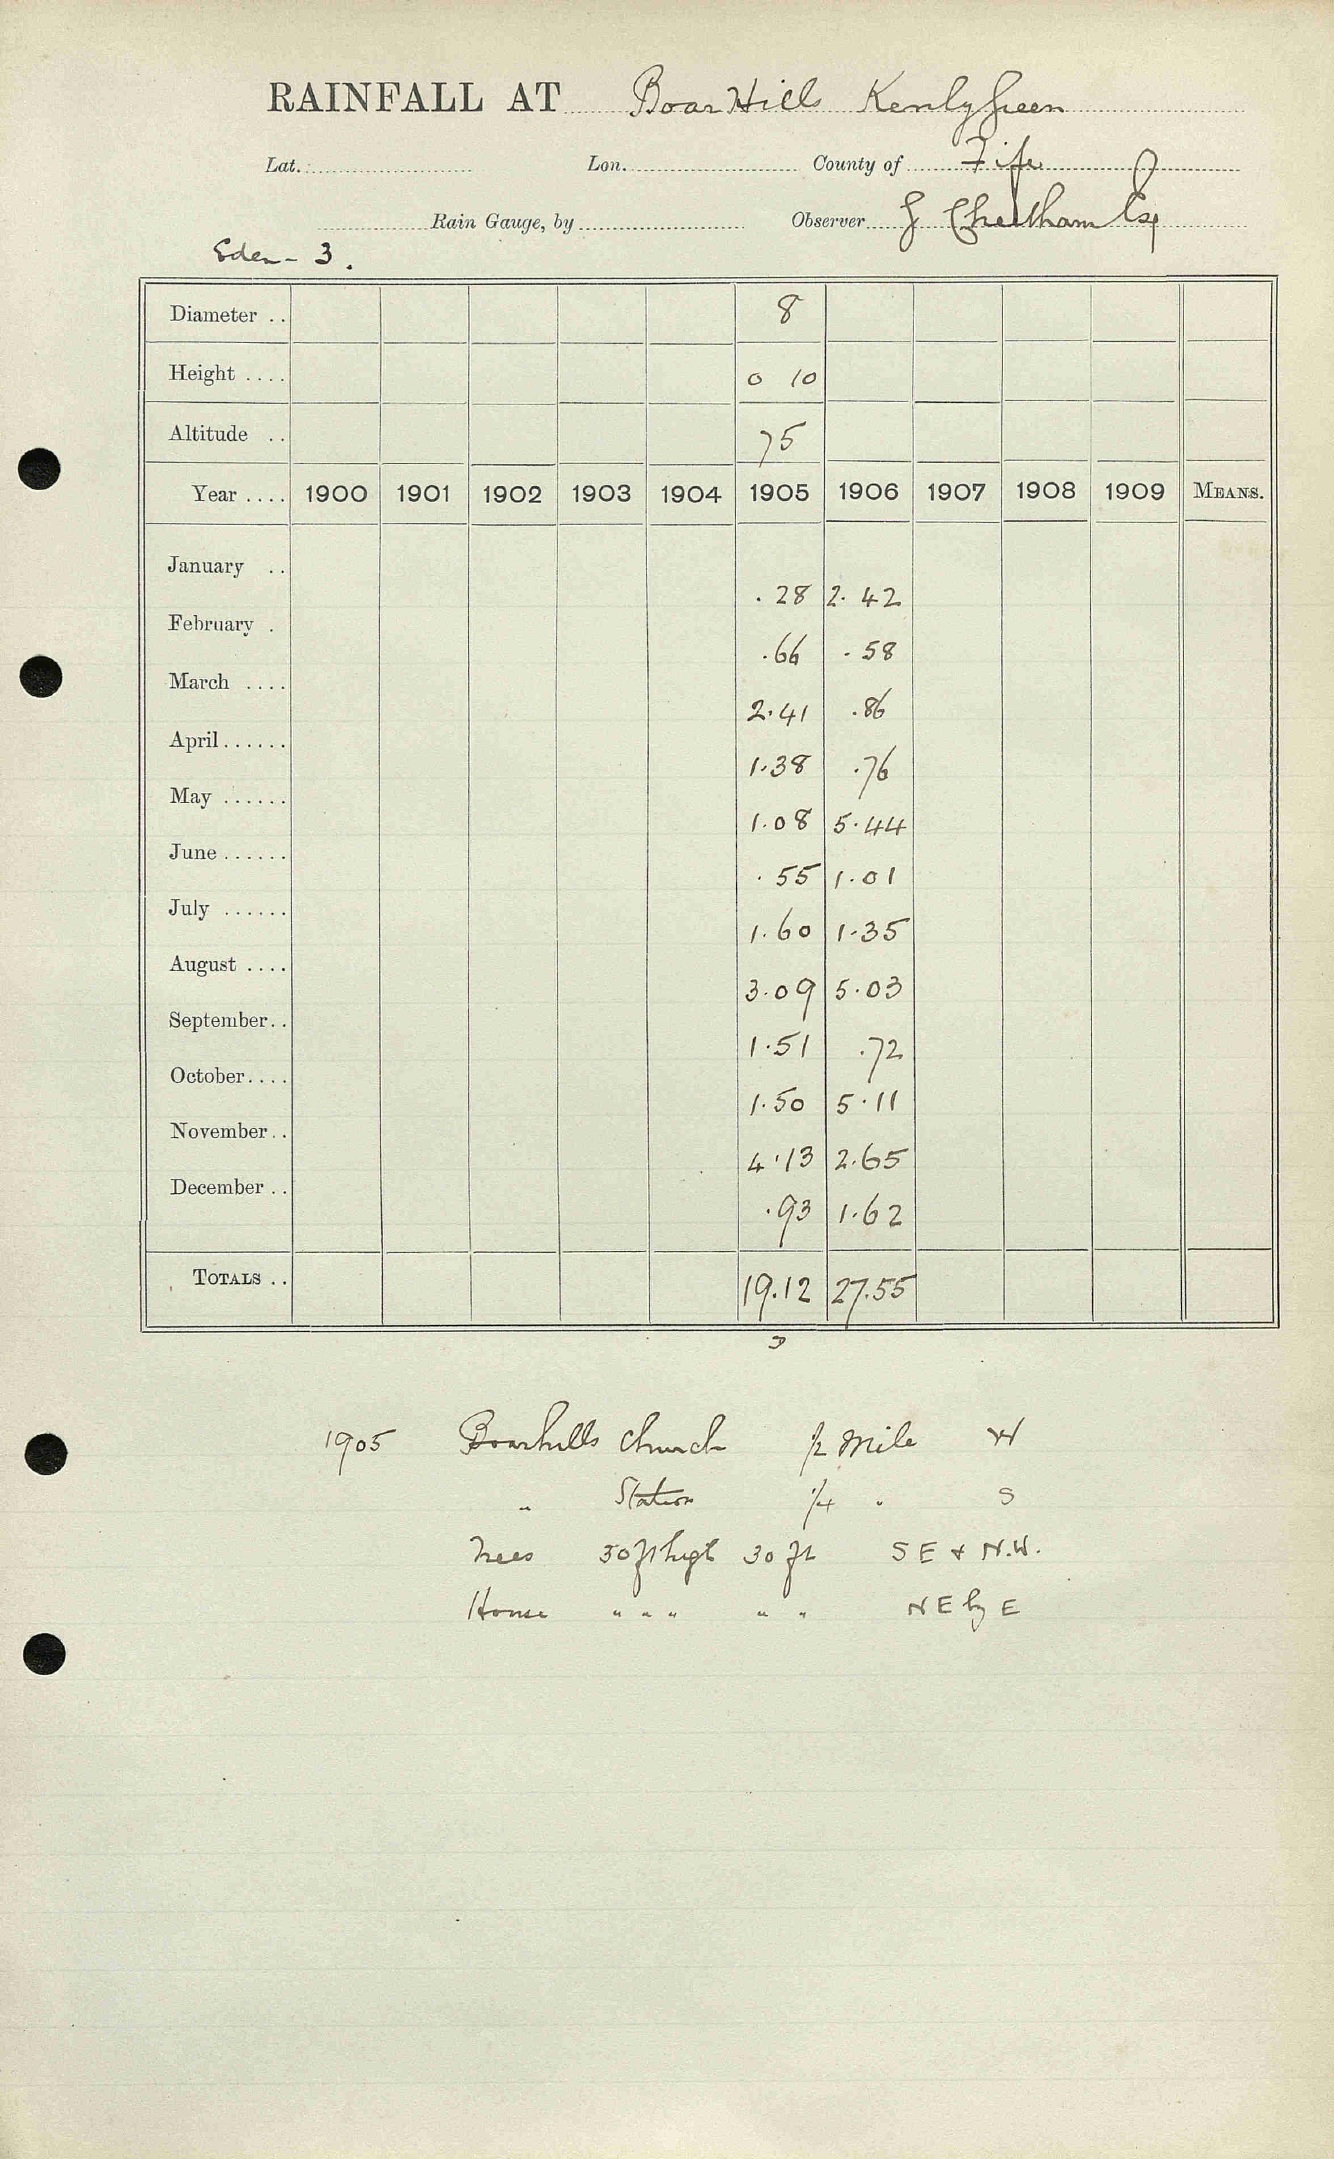 RAINFALL AT Boar Hills Kenly Green
Lat. Lon. County of Fife
Rain Gauge, by Observer J Cheetham Esq
Eden - 3.
Diameter .. 8
Height .... 0 10
Altitude .. 75
Year .... 1900 1901 1902 1903 1904 1905 1906 1907 1908 1909 MEANS.
January .. .28 2.42
February . .66 .58
March .... 2.41 .86
April...... 1.38 .76
May ...... 1.08 5.44
June...... .55 1.01
July ...... 1.60 1.35
August .... 3.09 5.03
September.. 1.51 .72
October.... 1.50 5.11
November.. 4.13 2.65
December.. .93 1.62
TOTALS .. 19.12 27.55
1905 Boarhills Church 1/2 Mile W
" Station 1/4 " S
Trees 30 ft high 30 ft SE & N.W.
House " " " " " NE by E